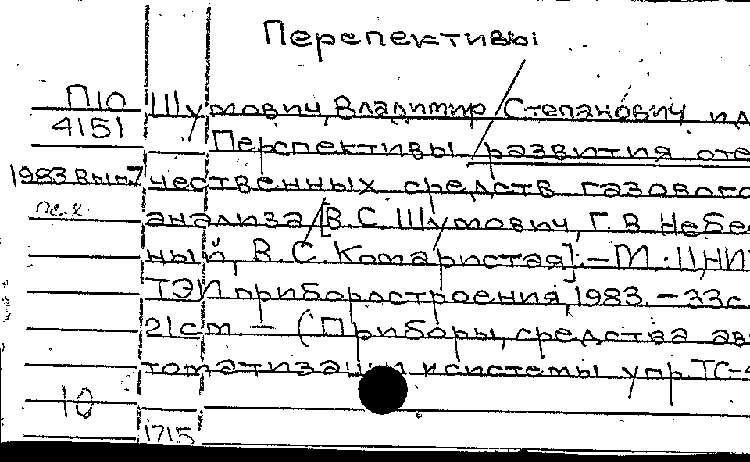 Перспективы
П10 Шумович, Владимир Степанович и д
4151 Перспективы развития оте
1983 вып.7 чественных средств газового
анализа/[В.С.Шумович, Г.В. Небе
ный, В.С. Комаристая].-М.:ЦНИ
ТЭИ приборостроения, 1983.-33с
21см - (Приборы, средства ав
томатизации и системы упр. ТС-4
10
1715